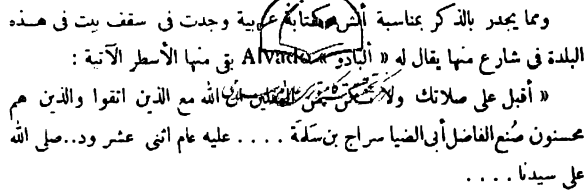 ومما يجدر بالذكر بمناسبة كتابة عربية وجدت فى سقف بيت فى هذه
البلدة فى شارع منها يقال له « ألبادو » Alvado بقى منها الأسطر الآتية :
« أقبل على صلاتك ولا تكن من الغافلين ان الله مع الذين اتقوا والذين هم
محسنون صُنع الفاضل أبى الضيا سراج بن سَلمَة . . . . عليه عام اثنى عشر ود.. صلى الله
على سيدنا . . . .